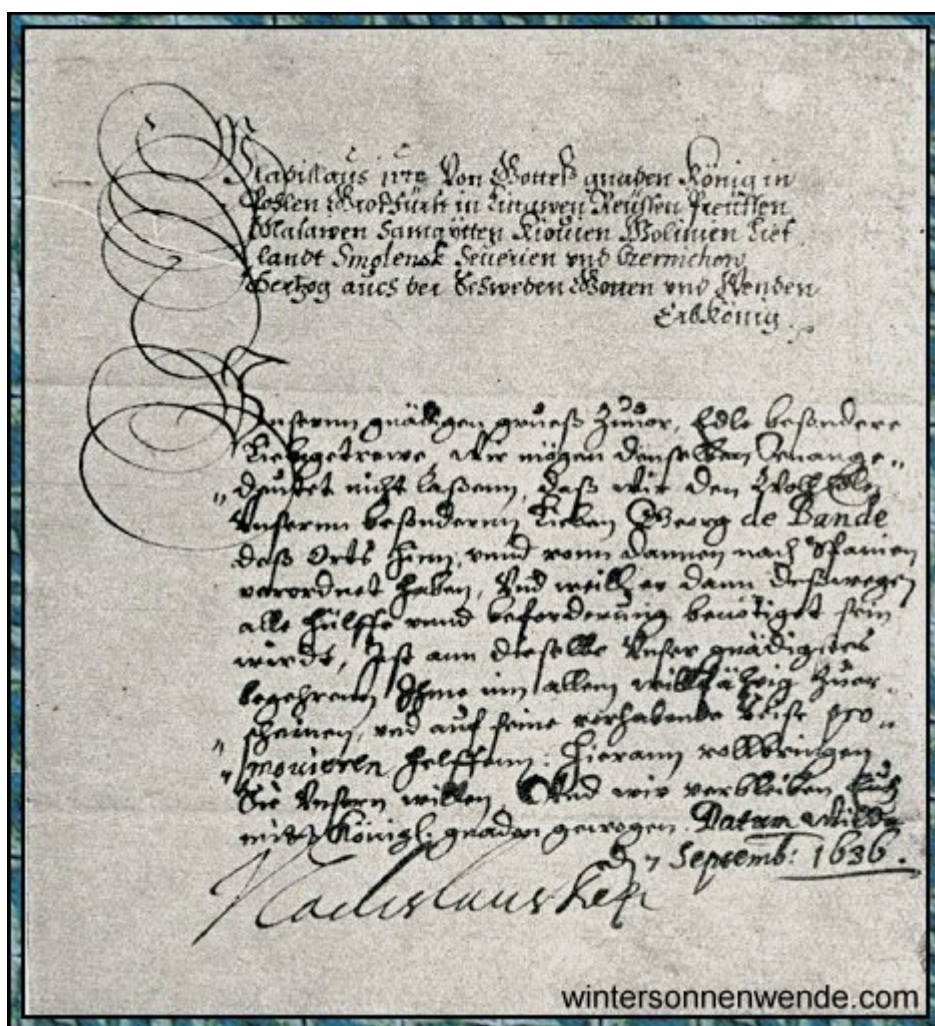 Vladislaus Von Gottes gnaden König in
Pohlen Großfürst in Reussen Preussen
Samaytten Kiouien Wolinien Lief
landt Smolensk Seuerien vnd Czernichow
Hertzog auch der Schweden Gotten vnd Wenden
ErbKönig.
Vnsernn gnädigen grueß Zuuor, Edle besondere
Liebgetrewe, Wir mögen denselben
deutet nicht laßenn, daß wir den
Vnsernn besondernn Lieben Georg de Bande
deß Orts hinn, vnnd vonn dannen nach Spanien
verordnet haben, Vnd weill er dann deßwegen
alle hülffe vnnd beforderung benötiget sein
wirdt, Ist ann dieselbe Vnser gnädigstes
begehrenn Ihme inn allem willfährig Zuer„
scheinen, vnd auf seine vorhabende Reise pro„
„moviren helffenn: Hierann vollbringen
Sie Vnsern willen, Vnd wir verbleiben Euch
mitt Königl: gnaden gewogen. Datum Wilda
7 Septemb: 1636.
Vladislaus Rex
wintersonnenwende.com